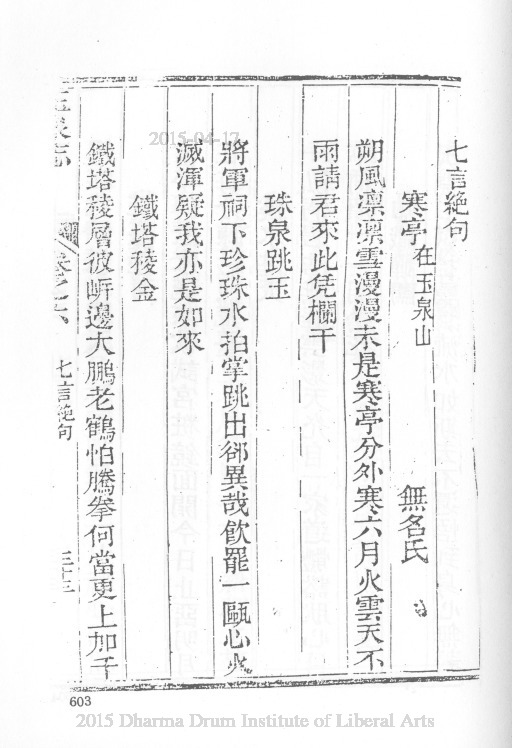 七言絕句
寒亭 在玉泉山 無名氏
朔風凛凛雪漫漫未是寒亭分外寒六月火雲天不
雨請君來此凭欄干
珠泉跳玉
將軍祠下珍珠水拍掌跳出郤異哉飲罷一甌心火
滅渾疑我亦是如來
鐵塔稜金
鐵塔稜層彼㟁邊大鵬老鶴怕騰拳何當更上加千
玉泉志
卷之六
七言絕句
603
2015-04-17
2015 Dharma Drum Institute of Liberal Arts